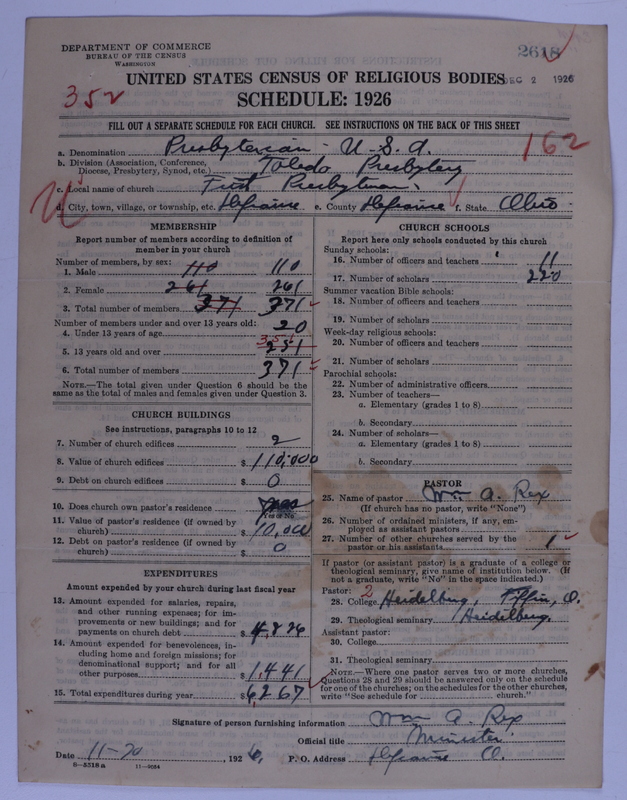 DEPARTMENT OF COMMERCE
BUREAU OF THE CENSUS
WASHINGTON
2618
UNITED STATES CENSUS OF RELIGIOUS BODIES
DEC 2 1926
352
SCHEDULE: 1926
FILL OUT A SEPARATE SCHEDULE FOR EACH CHURCH. SEE INSTRUCTIONS ON THE BACK OF THIS SHEET
162
a. Denomination Presbyterian - U.S.A.
b. Division (Association, Conference, Diocese, Presbytery, Synod, etc.) Toledo Presbytery
c. Local name of church First Presbyterian
d. City, town, village, or township, etc. Defiance e. County Defiance f. State Ohio
MEMBERSHIP
Report number of members according to definition of
member in your church
Number of members, by sex:
1. Male 110 110
2. Female 261 261
3. Total number of members 371 371
Number of members under and over 13 years old:
4. Under 13 years of age 20
5. 13 years old and over 351 251
6. Total number of members 371
NOTE.—The total given under Question 6 should be the
same as the total of males and females given under Question 3.
CHURCH BUILDINGS
See instructions, paragraphs 10 to 12
7. Number of church edifices 2
8. Value of church edifices $110,000
9. Debt on church edifices $0
10. Does church own pastor's residence yes
Yes or No
11. Value of pastor's residence (if owned by
church) $10,000
12. Debt on pastor's residence (if owned by
church) $0
EXPENDITURES
Amount expended by your church during last fiscal year
13. Amount expended for salaries, repairs,
and other running expenses; for im-
provements or new buildings; and for
payments on church debt $4,826
14. Amount expended for benevolences, in-
cluding home and foreign missions; for
denominational support; and for all
other purposes $1,441
15. Total expenditures during year $6,267
CHURCH SCHOOLS
Report here only schools conducted by this church
Sunday schools:
16. Number of officers and teachers 11
17. Number of scholars 220
Summer vacation Bible schools:
18. Number of officers and teachers
19. Number of scholars
Week-day religious schools:
20. Number of officers and teachers
21. Number of scholars
Parochial schools:
22. Number of administrative officers
23. Number of teachers—
a. Elementary (grades 1 to 8)
b. Secondary
24. Number of scholars—
a. Elementary (grades 1 to 8)
b. Secondary
PASTOR
25. Name of pastor Wm A. Rex
(If church has no pastor, write "None")
26. Number of ordained ministers, if any, em-
ployed as assistant pastors
27. Number of other churches served by the
pastor or his assistants 1
If pastor (or assistant pastor) is a graduate of a college or
theological seminary, give name of institution below. (If
not a graduate, write "No" in the space indicated.)
Pastor: 2
28. College Heidelberg, Tiffin, O.
29. Theological seminary Heidelberg
Assistant pastor:
30. College
31. Theological seminary
NOTE.—Where one pastor serves two or more churches,
Questions 28 and 29 should be answered only on the schedule
for one of the churches; on the schedules for the other churches,
write "See schedule for church."
Signature of person furnishing information Wm A. Rex
Official title Minister
Date 11-20, 1926. P. O. Address Defiance O.
8-5518a 11-9064